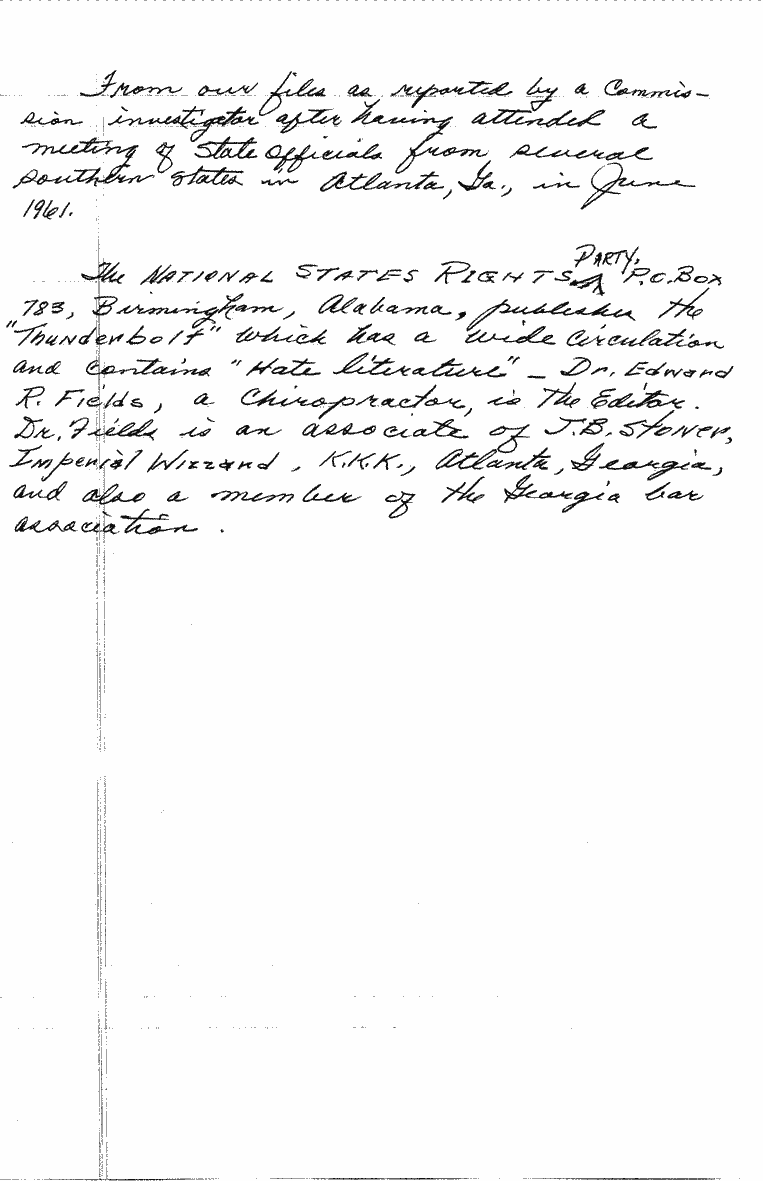 From our files as reported by a Commis-
sion investigator after having attended a
meeting of State Officials from several
Southern States in Atlanta, Ga., in June
1961.
The NATIONAL STATES RIGHTS PARTY, P.O. Box
783, Birmingham, Alabama, publishes the
"Thunderbolt" which has a wide circulation
and contains "Hate literature" - Dr. Edward
R. Fields, a Chiropractor, is The Editor.
Dr. Fields is an associate of J.B. Stoner,
Imperial Wizzard, K.K.K., Atlanta, Georgia,
and also a member of the Georgia bar
association.